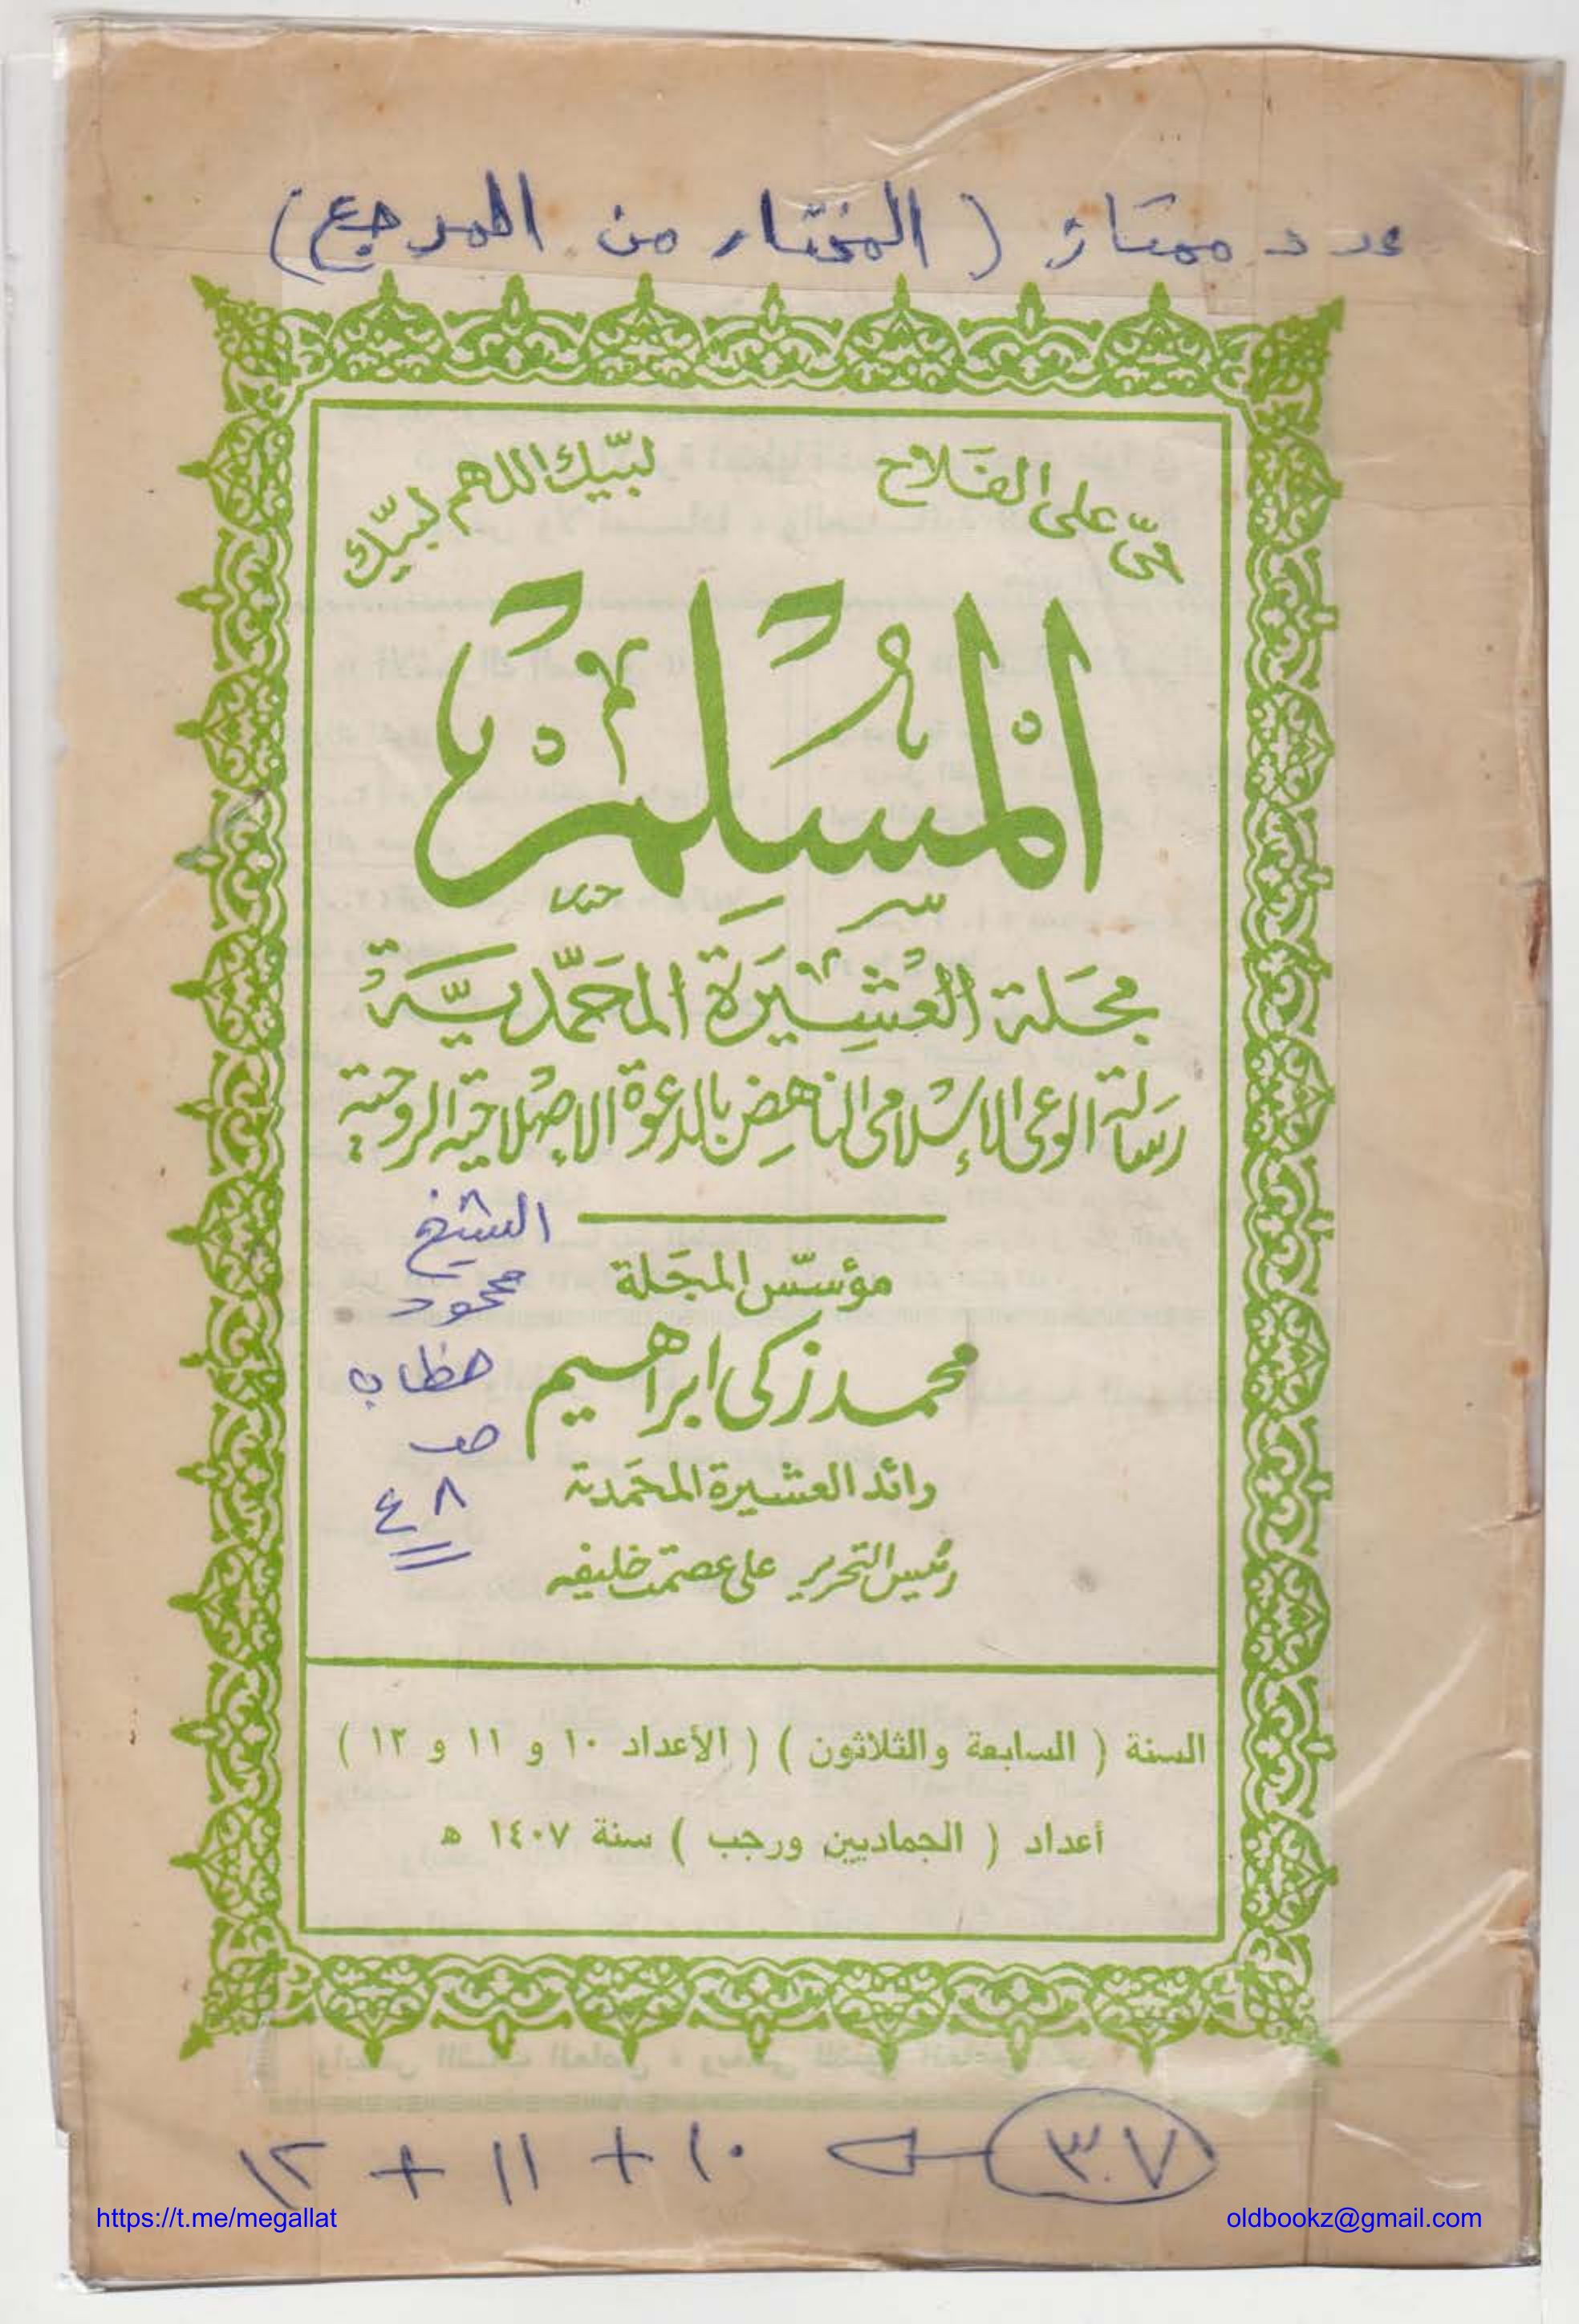 عدد ممتاز ( المختار من المرجع )
حىّ على الفَلاح
لبّيك اللهم لبّيك
المُسْلِمُ
مجَلة العَشِيرَة المحَمّديَّة
رسَالة الوعى الإسْلامى الناهِض بالدعْوة الإصْلاحيّة الروحيّة
مؤسّس المجَلة
محمد زكى ابراهيم
رائد العشيرة المحَمّدية
رئيس التحرير على عصمت خليفه
الشيخ
محمود
خطاب
صـ
٤٨
السنة ( السابعة والثلاثون ) ( الأعداد ١٠ و ١١ و ١٢ )
أعداد ( الجماديين ورجب ) سنة ١٤٠٧ هـ
٣٧ ١٠ + ١١ + ١٢
https://t.me/megallat
oldbookz@gmail.com